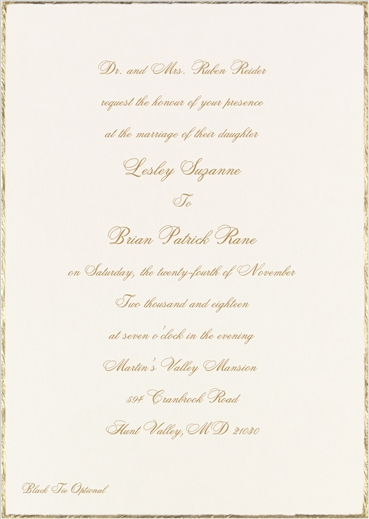 Dr. and Mrs. Ruben Reider
request the honour of your presence
at the marriage of their daughter
Lesley Suzanne
To
Brian Patrick Rane
on Saturday, the twenty-fourth of November
Two thousand and eighteen
at seven o'clock in the evening
Martin's Valley Mansion
594 Cranbrook Road
Hunt Valley, MD 21030
Black Tie Optional